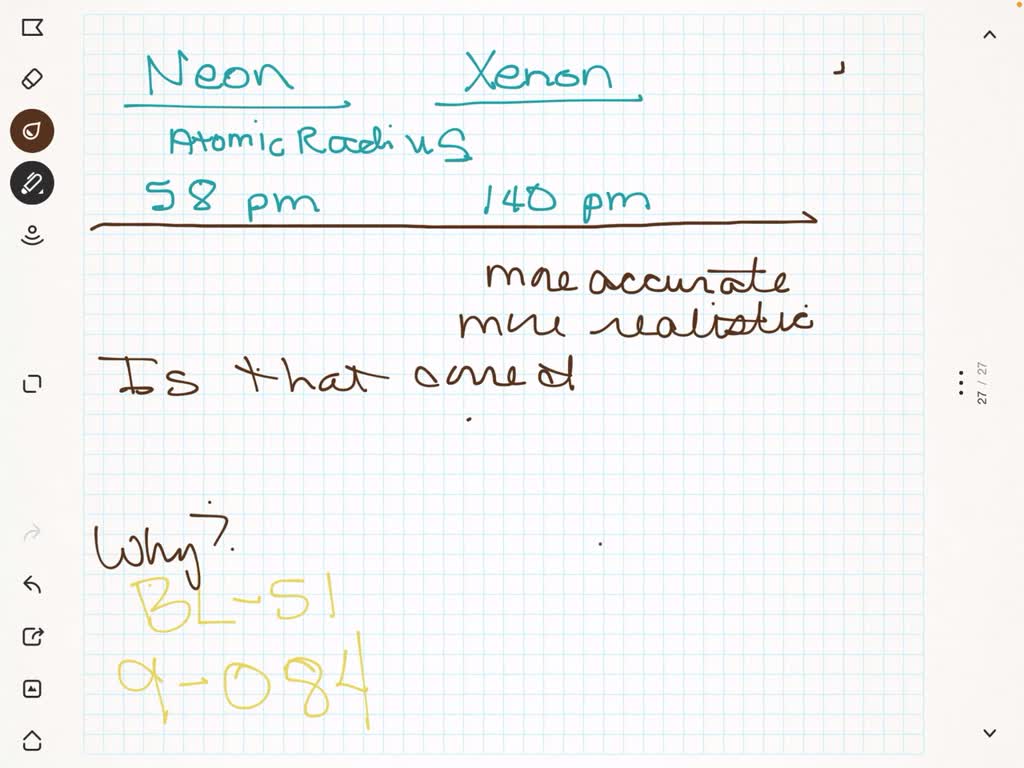 Neon Xenon
Atomic Radius
58 pm 140 pm
more accurate
more realistic
Is that correct
Why?
BL-51
9-084
27 / 27